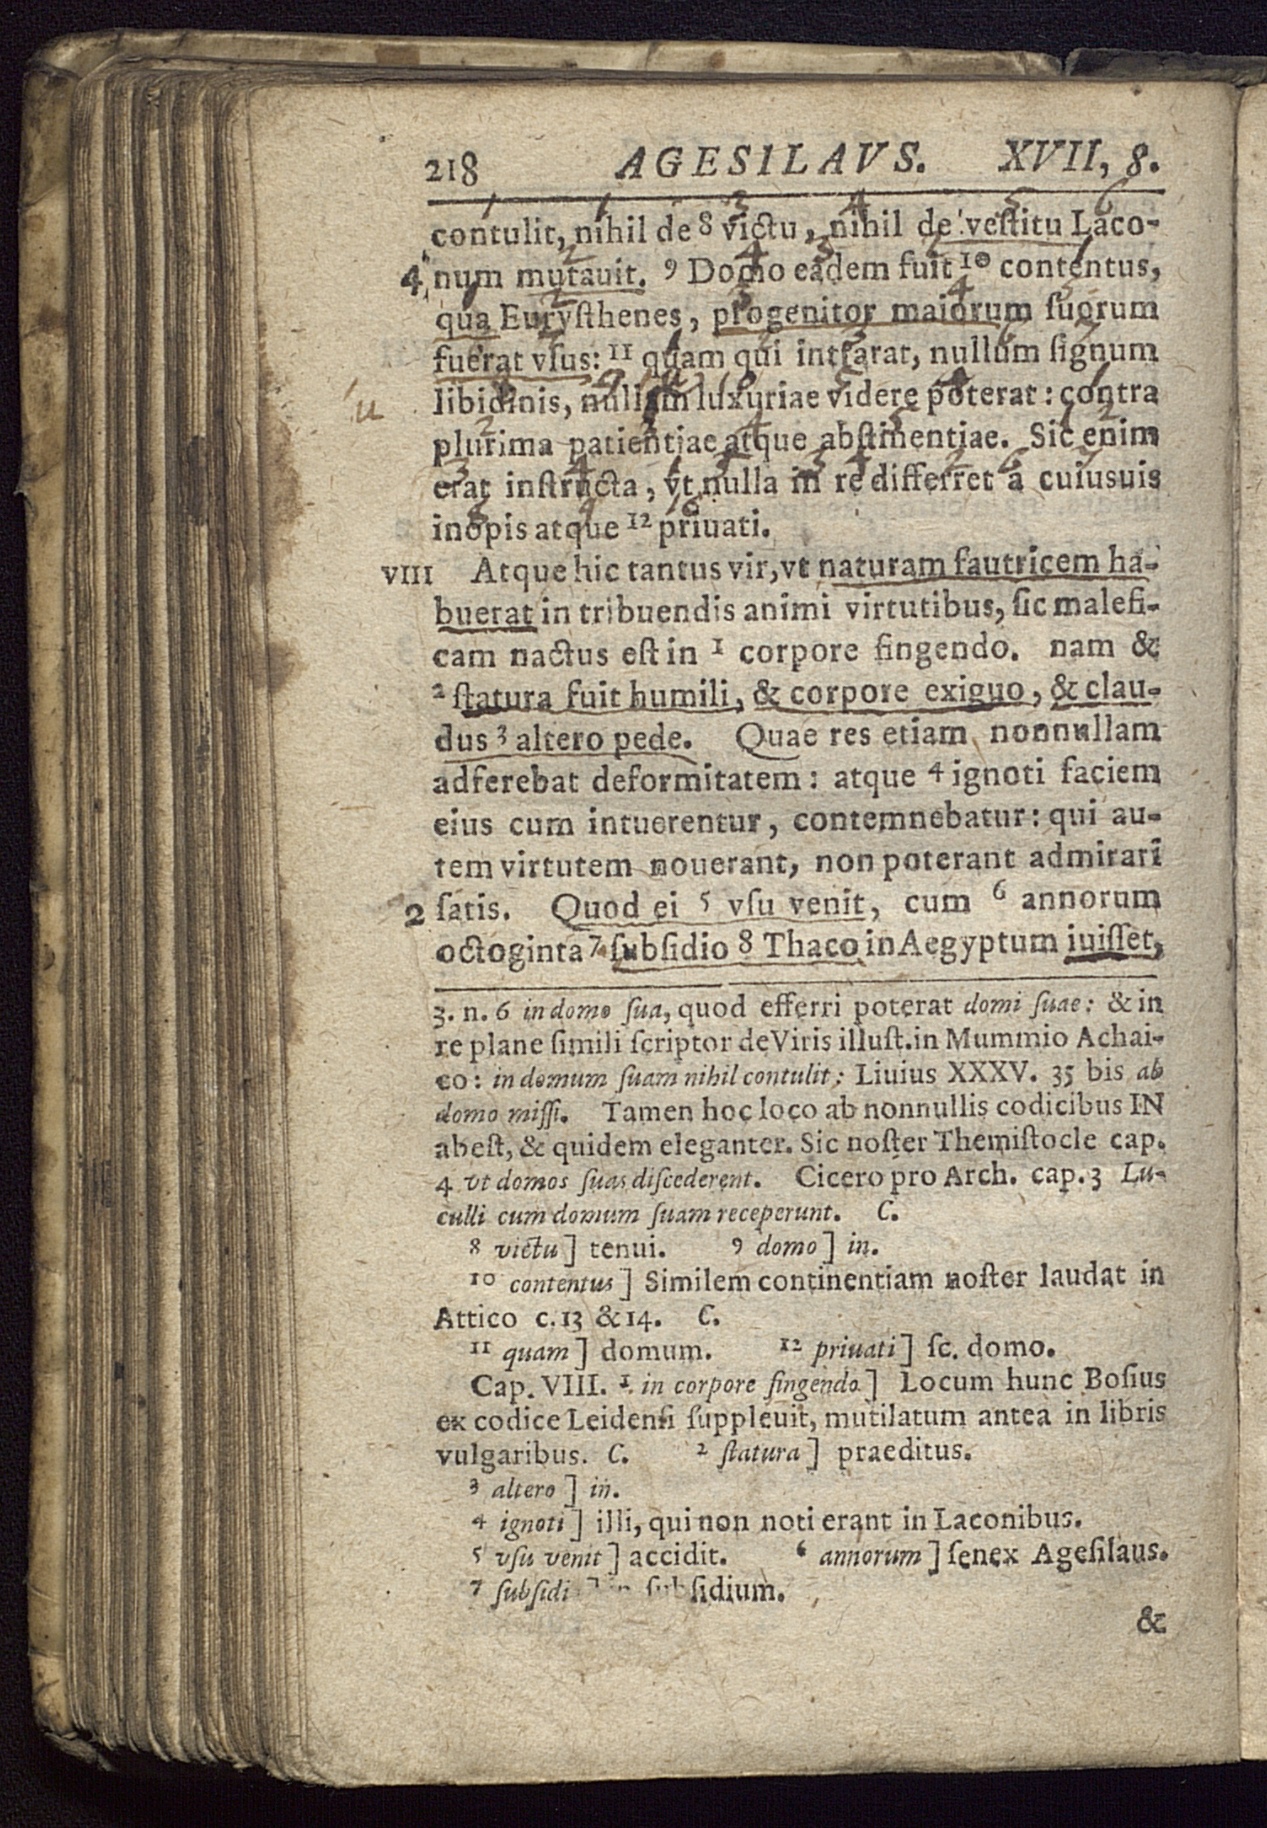 218 AGESILAVS. XVII, 8.
contulit, nihil de 8 victu, nihil de vestitu Laco-
4 num mutauit. 9 Domo eadem fuit 10 contentus,
qua Eurysthenes, progenitor maiorum suorum
fuerat vsus: 11 quam qui intrarat, nullum signum
u libidinis, nullum luxuriae videre poterat: contra
plurima patientiae atque abstinentiae. Sic enim
erat instructa, vt nulla in re differret a cuiusuis
inopis atque 12 priuati.
VIII Atque hic tantus vir, vt naturam fautricem ha-
buerat in tribuendis animi virtutibus, sic malefi-
cam nactus est in 1 corpore fingendo. nam &
2 statura fuit humili, & corpore exiguo, & clau-
dus 3 altero pede. Quae res etiam nonnullam
adferebat deformitatem: atque 4 ignoti faciem
eius cum intuerentur, contemnebatur: qui au-
tem virtutem nouerant, non poterant admirari
2 satis. Quod ei 5 vsu venit, cum 6 annorum
octoginta 7 subsidio 8 Thaco in Aegyptum iuisset,
3. n. 6 in domo sua, quod efferri poterat domi suae: & in
re plane simili scriptor de Viris illust. in Mummio Achai-
co: in domum suam nihil contulit; Liuius XXXV. 35 bis ab
domo missi. Tamen hoc loco ab nonnullis codicibus IN
abest, & quidem eleganter. Sic noster Themistocle cap.
4 vt domos suas discederent. Cicero pro Arch. cap. 3 Lu-
culli cum domum suam receperunt. C.
8 victu] tenui. 9 domo] in.
10 contentus] Similem continentiam noster laudat in
Attico c. 13 & 14. C.
11 quam] domum. 12 priuati] sc. domo.
Cap. VIII. 1 in corpore fingendo] Locum hunc Bosius
ex codice Leidensi suppleuit, mutilatum antea in libris
vulgaribus. C. 2 statura] praeditus.
3 altero] in.
4 ignoti] illi, qui non noti erant in Laconibus.
5 vsu venit] accidit. 6 annorum] senex Agesilaus.
7 subsidi subsidium.
&